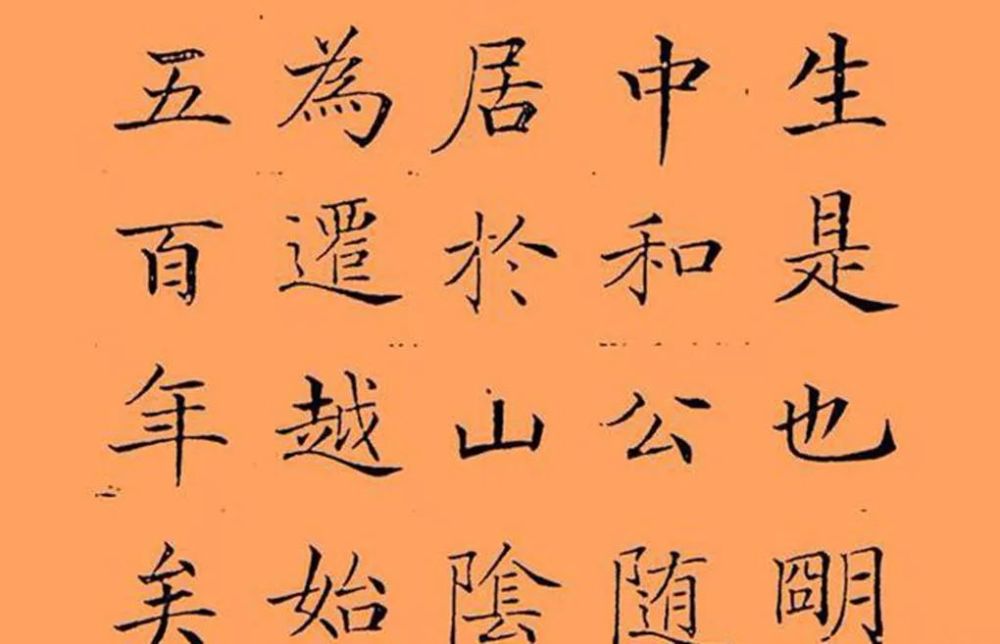 生是也朙
中和公随
居於山陰
為遷越始
五百年矣